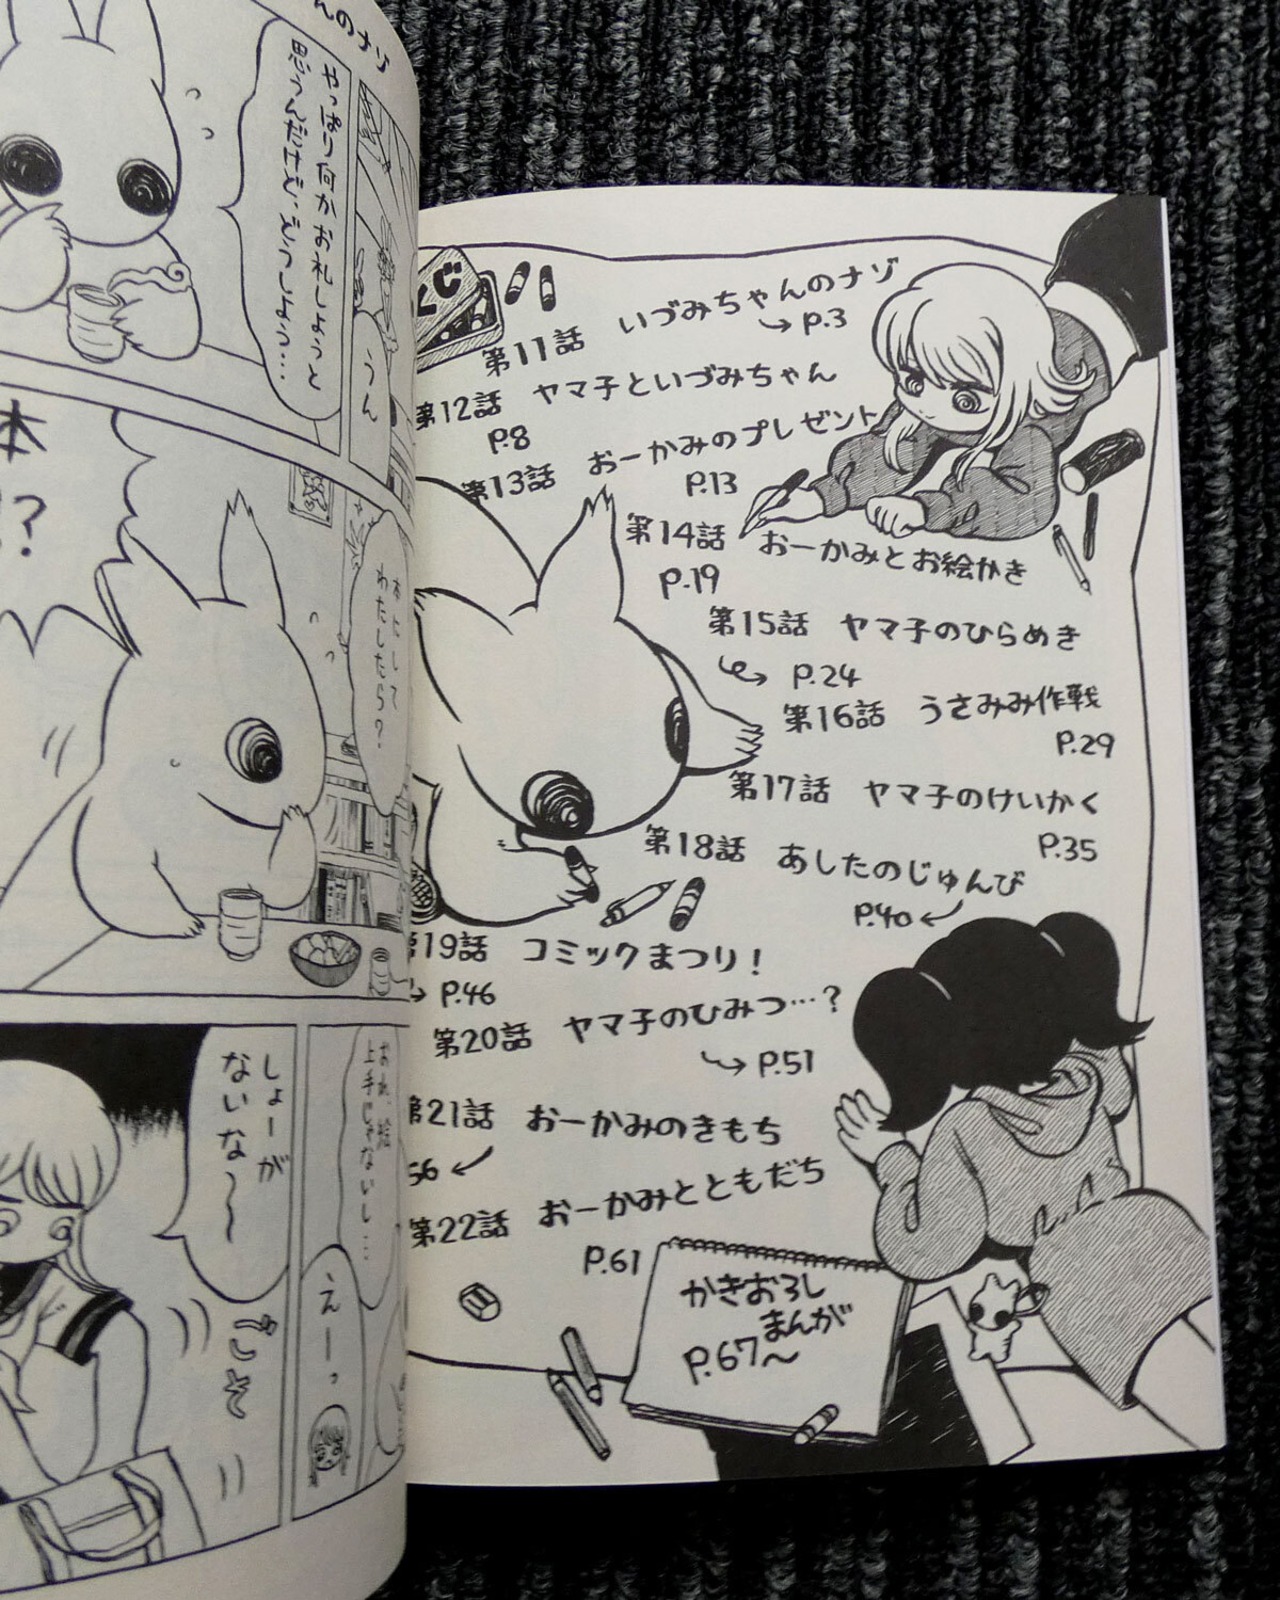 んのナゾ
やっぱり何かお礼しようと
思うんだけど…どうしよう…
うん
本
!?
本として
わたしたら?
おれ、絵
上手じゃないし…
えーっ
しょーが
ないな〜〜
ごそ
くじ
第11話 いづみちゃんのナゾ
→P.3
第12話 ヤマ子といづみちゃん
P.8
第13話 おーかみのプレゼント
P.13
第14話 おーかみとお絵かき
P.19
第15話 ヤマ子のひらめき
P.24
第16話 うさみみ作戦
P.29
第17話 ヤマ子のけいかく
P.35
第18話 あしたのじゅんび
P.40
第19話 コミックまつり!
→P.46
第20話 ヤマ子のひみつ…?
→P.51
第21話 おーかみのきもち
56
第22話 おーかみとともだち
P.61
かきおろし
まんが
P.67〜